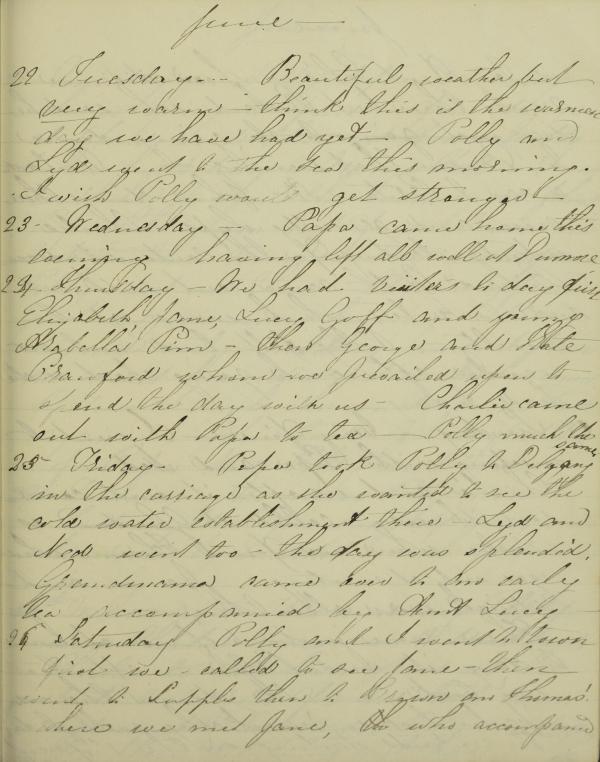 June —
22 Tuesday -- Beautiful weather but
very warm - think this is the warmest
day we have had yet - Polly and
Lyd went to the sea this morning.
I wish Polly would get stronger -
23 - Wednesday - Papa came home this
evening having left all well at Dunmore
24 Thursday - We had visitors to day first
Elizabeth, Jane, Lucy Goff and young
Arabella Pim - then George and Kate
Crawford whom we prevailed upon to
spend the day with us - Charlie came
out with Papa to tea - Polly much the same
25 Friday - Papa took Polly to Delgany
in the carriage as she wanted to see the
cold water establishment there - Lyd and
Ned went too - the day was splendid.
Grandmama came over to an early
tea accompanied by Aunt Lucy -
26 Saturday Polly and I went to town
first we called to see Jane - then
went to then to Brown and Thomas'
where we met Jane, who accompanied